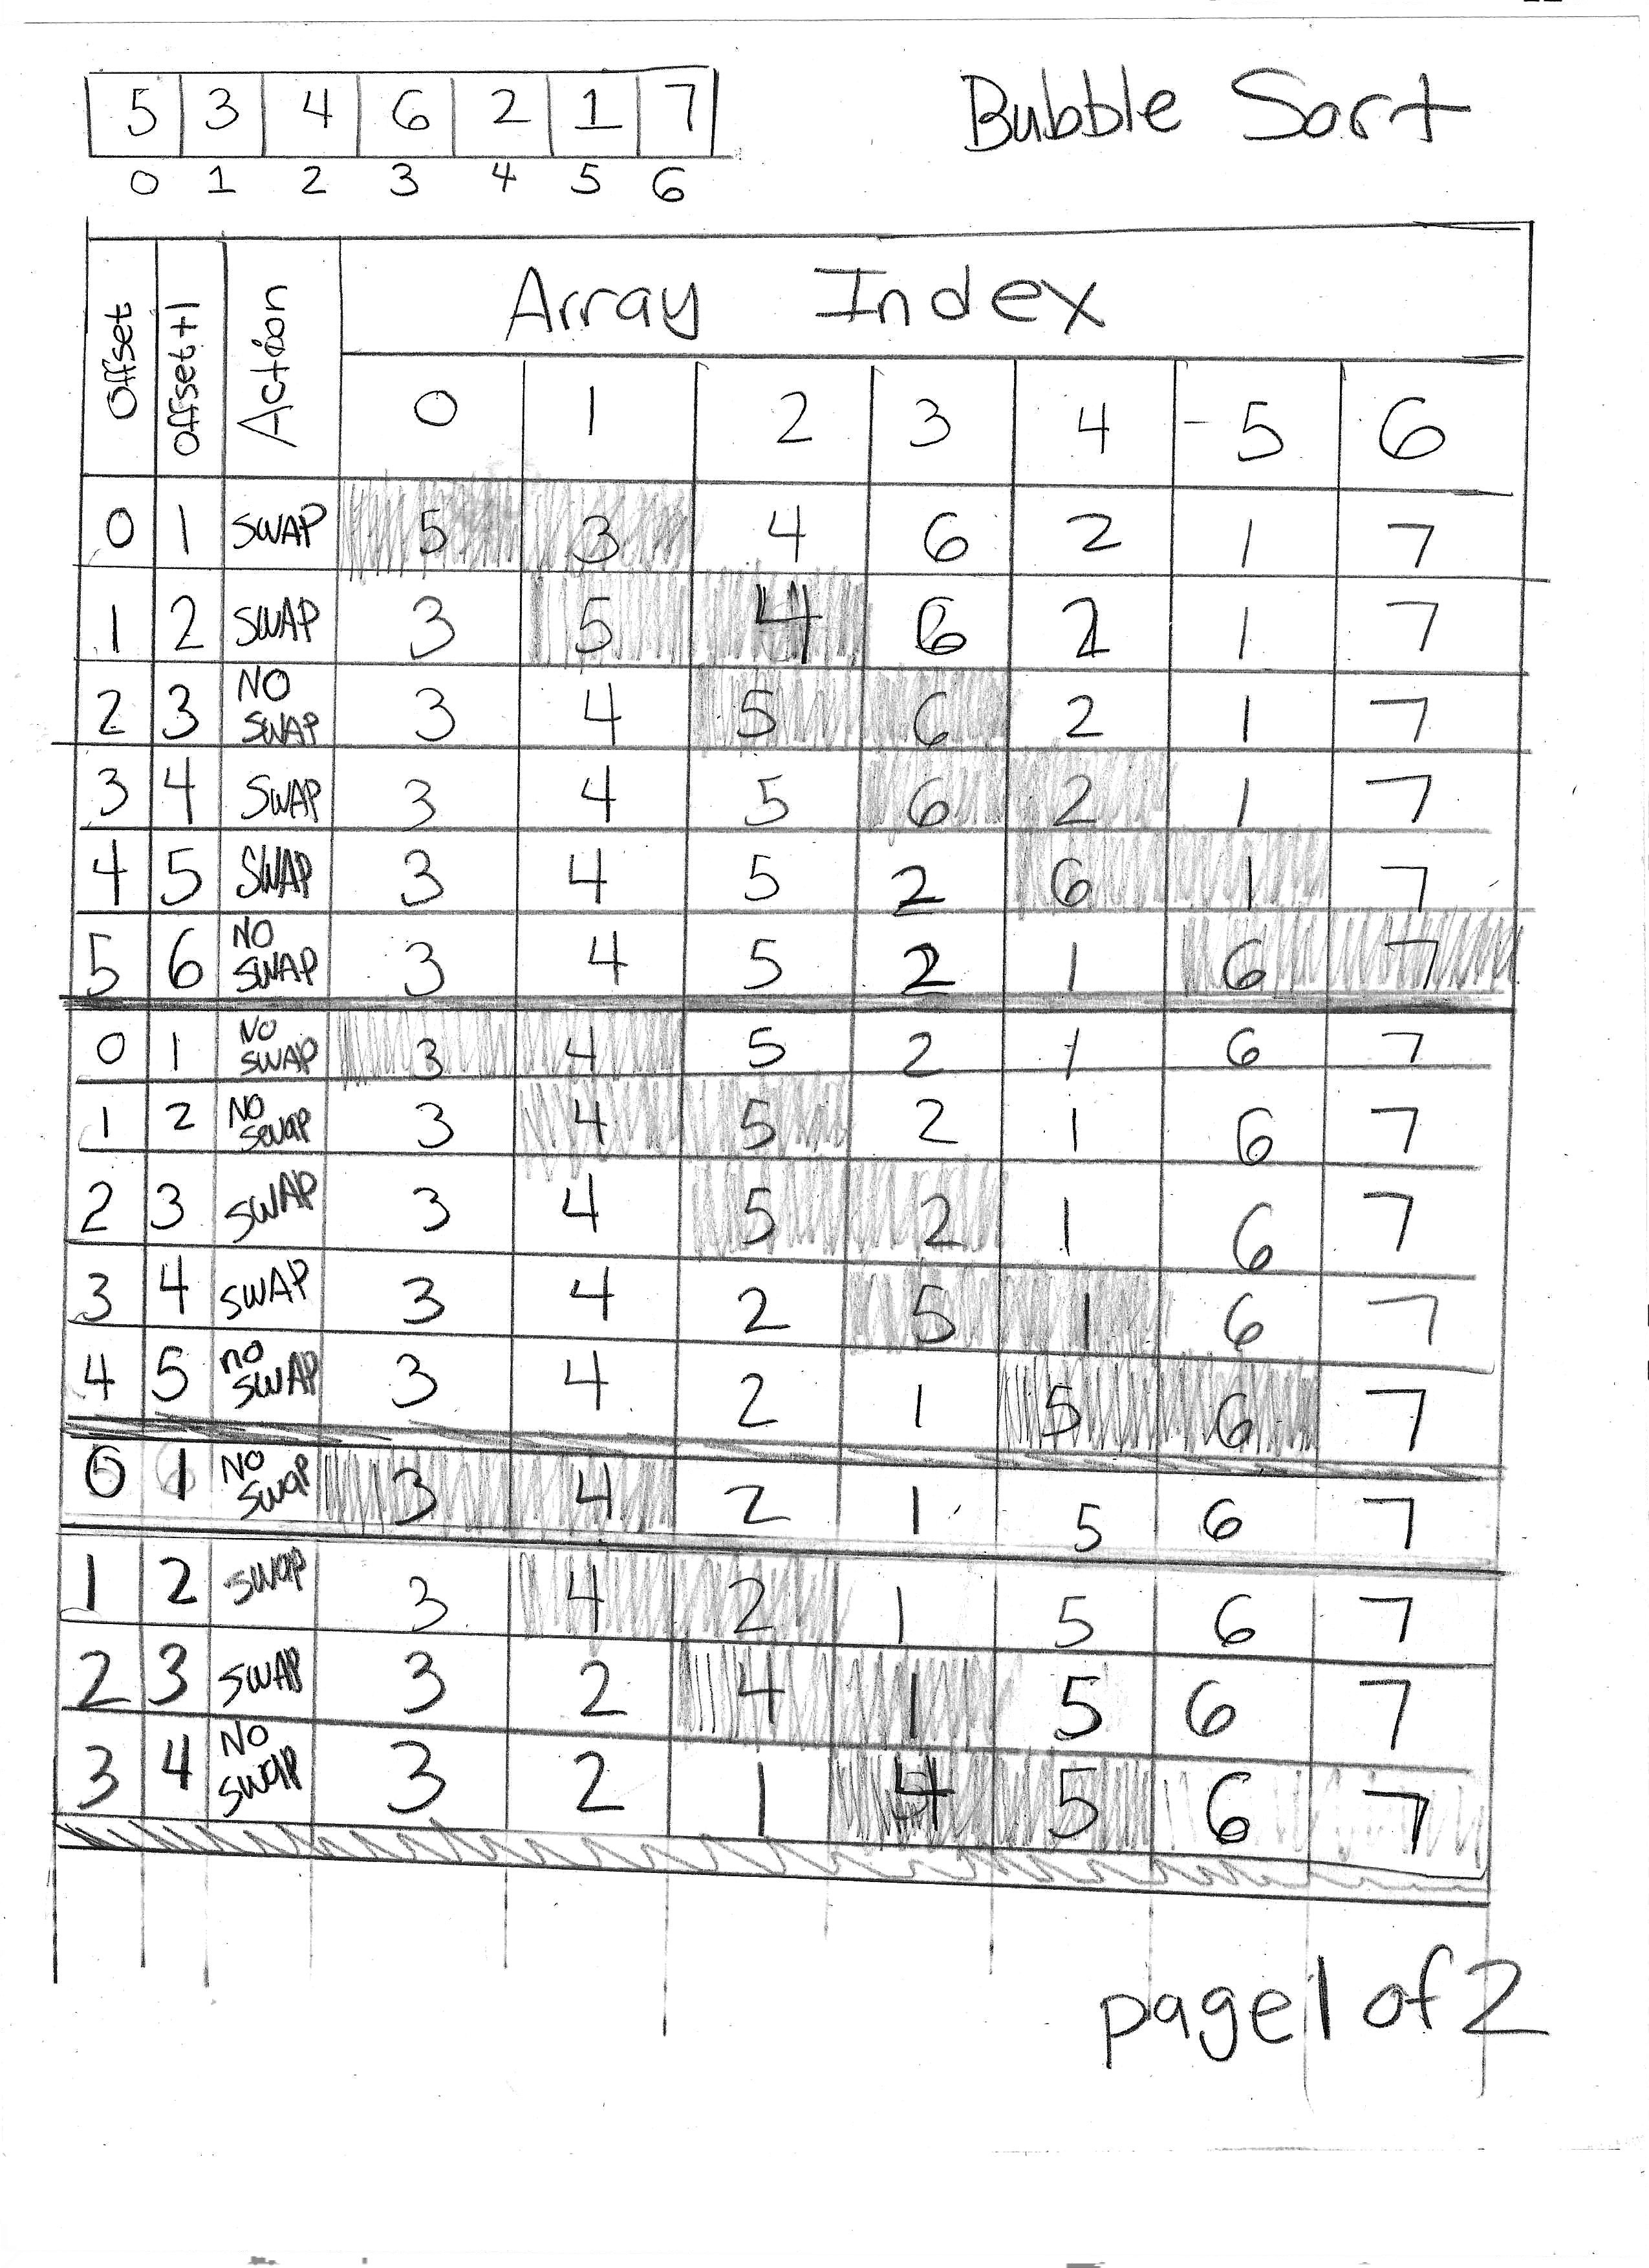 5 3 4 6 2 1 7
Bubble Sort
0 1 2 3 4 5 6
Offset Offset+1 Action Array Index
0 1 2 3 4 5 6
0 1 SWAP 5 3 4 6 2 1 7
1 2 SWAP 3 5 4 6 2 1 7
2 3 NO SWAP 3 4 5 6 2 1 7
3 4 SWAP 3 4 5 6 2 1 7
4 5 SWAP 3 4 5 2 6 1 7
5 6 NO SWAP 3 4 5 2 1 6 7
0 1 NO SWAP 3 4 5 2 1 6 7
1 2 NO SWAP 3 4 5 2 1 6 7
2 3 SWAP 3 4 5 2 1 6 7
3 4 SWAP 3 4 2 5 1 6 7
4 5 no SWAP 3 4 2 1 5 6 7
0 1 NO Swap 3 4 2 1 5 6 7
1 2 SWAP 3 4 2 1 5 6 7
2 3 SWAP 3 2 4 1 5 6 7
3 4 NO SWAP 3 2 1 4 5 6 7
page 1 of 2